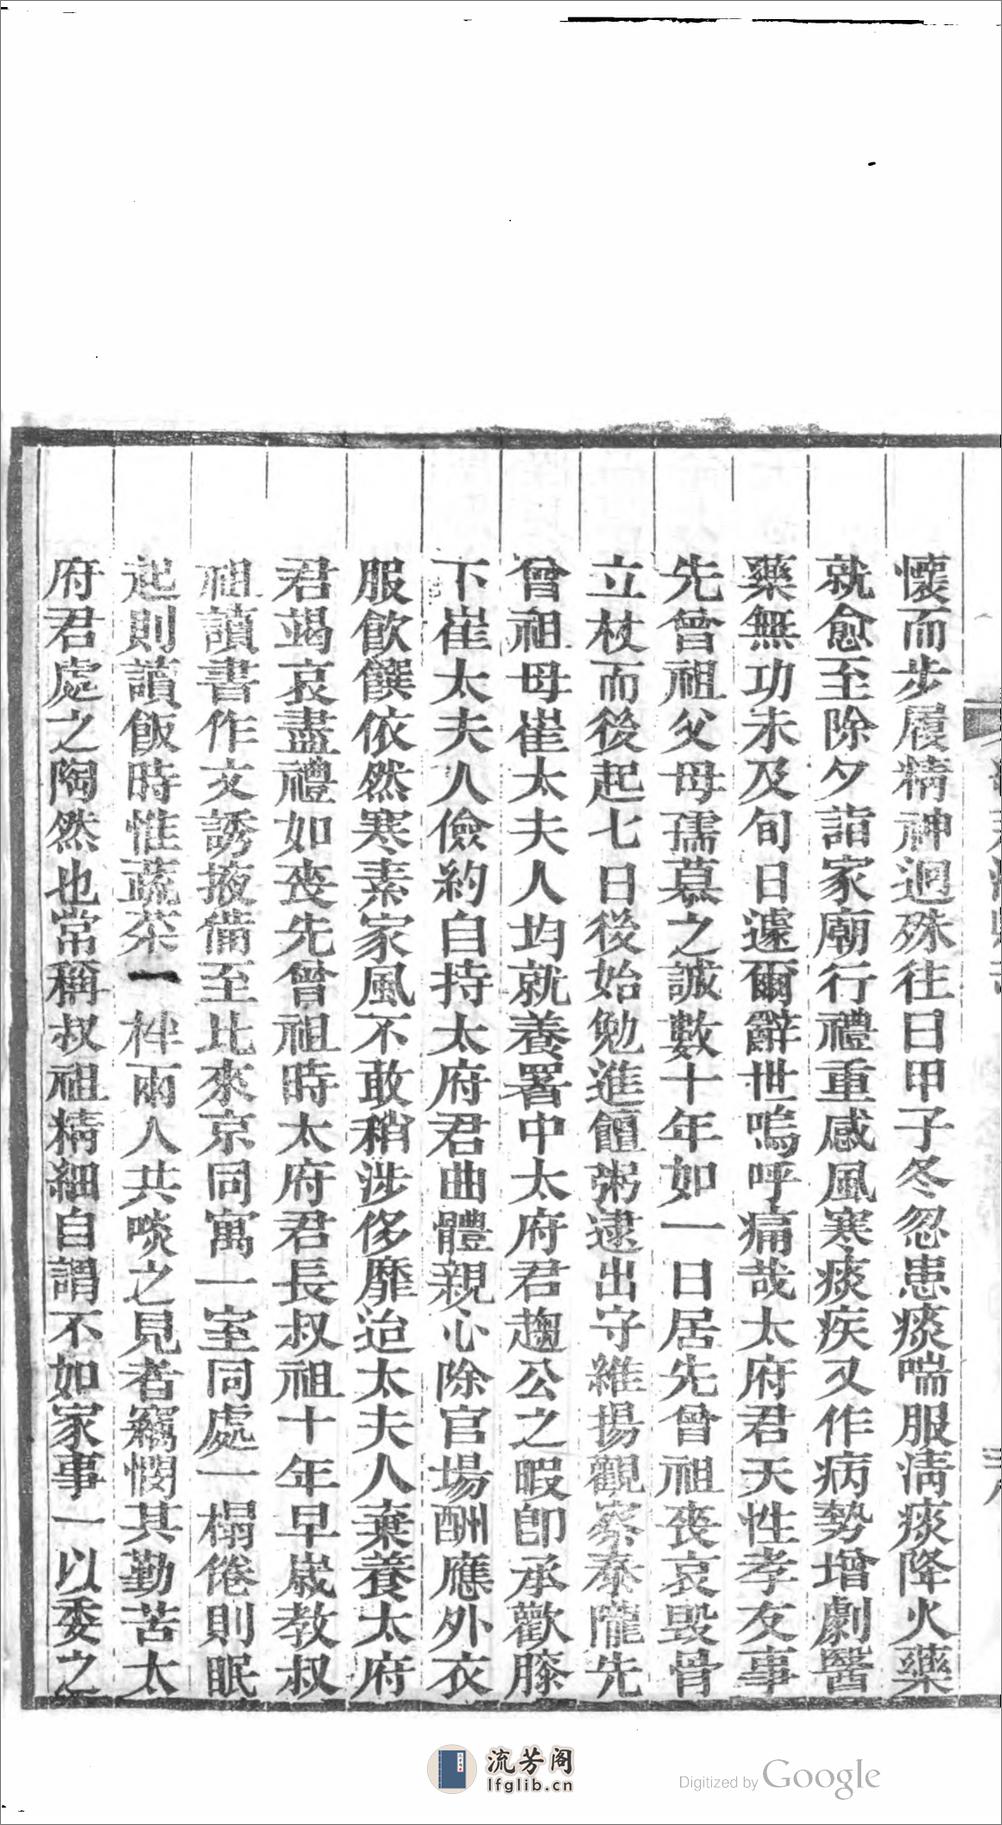 懷而步履精神迥殊往日甲子冬忽患痰喘服清痰降火藥
就愈至除夕詣家廟行禮重感風寒痰疾又作病勢增劇醫
藥無功未及旬日遽爾辭世嗚呼痛哉太府君天性孝友事
先曾祖父母孺慕之誠數十年如一日居先曾祖喪哀毀骨
立杖而後起七日後始勉進饘粥逮出守維揚觀察秦隴先
曾祖母崔太夫人均就養署中太府君趨公之暇卽承歡膝
下崔太夫人儉約自持太府君曲體親心除官場酬應外衣
服飲饌依然寒素家風不敢稍涉侈靡迨太夫人棄養太府
君竭哀盡禮如喪先曾祖時太府君長叔祖十年早歲教叔
祖讀書作文誘掖備至比來京同寓一室同處一榻倦則眠
起則讀飯時惟蔬茶一柈兩人共啖之見者竊憫其勤苦太
府君處之陶然也常稱叔祖精細自謂不如家事一以委之
流芳阁
lfglib.cn
Digitized by Google